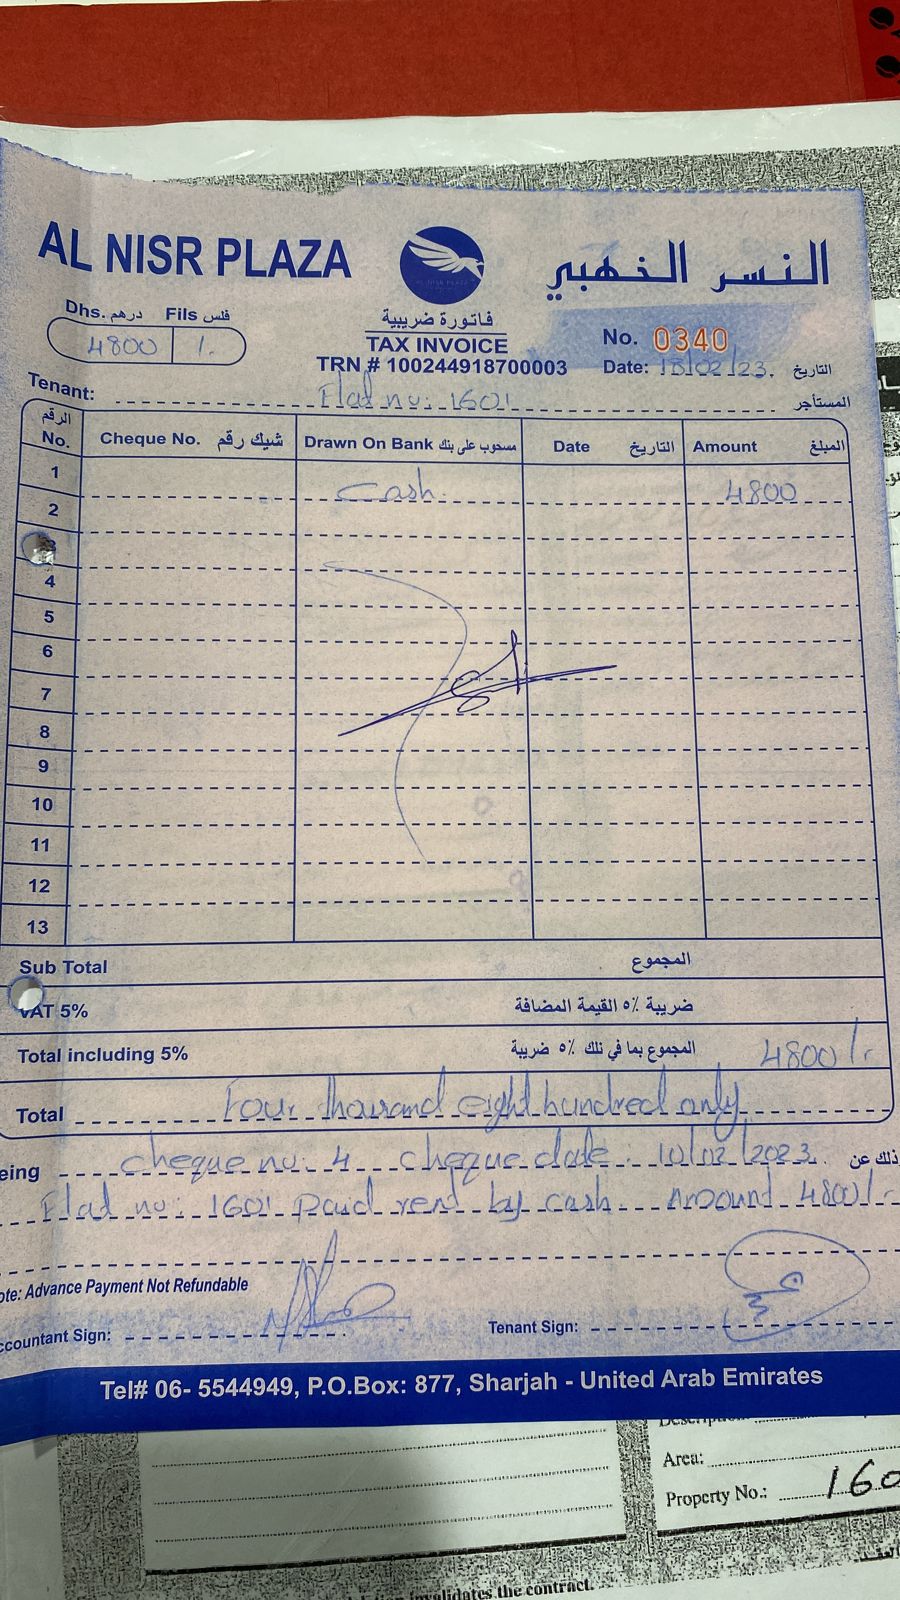 AL NISR PLAZA
النسر الذهبي
Dhs. درهم Fils فلس
4800 /.
فاتورة ضريبية
TAX INVOICE
TRN # 100244918700003
No. 0340
Date: /02/23. التاريخ
Tenant: Flat no: 1601 المستأجر
الرقم No. Cheque No. شيك رقم Drawn On Bank مسحوب على بنك Date التاريخ Amount المبلغ
1 Cash 4800
2
4
5
6
7
8
9
10
11
12
13
Sub Total المجموع
VAT 5% ضريبة ٥٪ القيمة المضافة
Total including 5% المجموع بما في ذلك ٥٪ ضريبة 4800/.
Total Four thousand eight hundred only
eing cheque no: 4 cheque date: 10/02/2023. ذلك عن
Flat no: 1601 paid rent by cash Amount 4800/-
ote: Advance Payment Not Refundable
ccountant Sign:
Tenant Sign:
Tel# 06- 5544949, P.O.Box: 877, Sharjah - United Arab Emirates
Description
Area:
Property No.: 160
invalidates the contract.